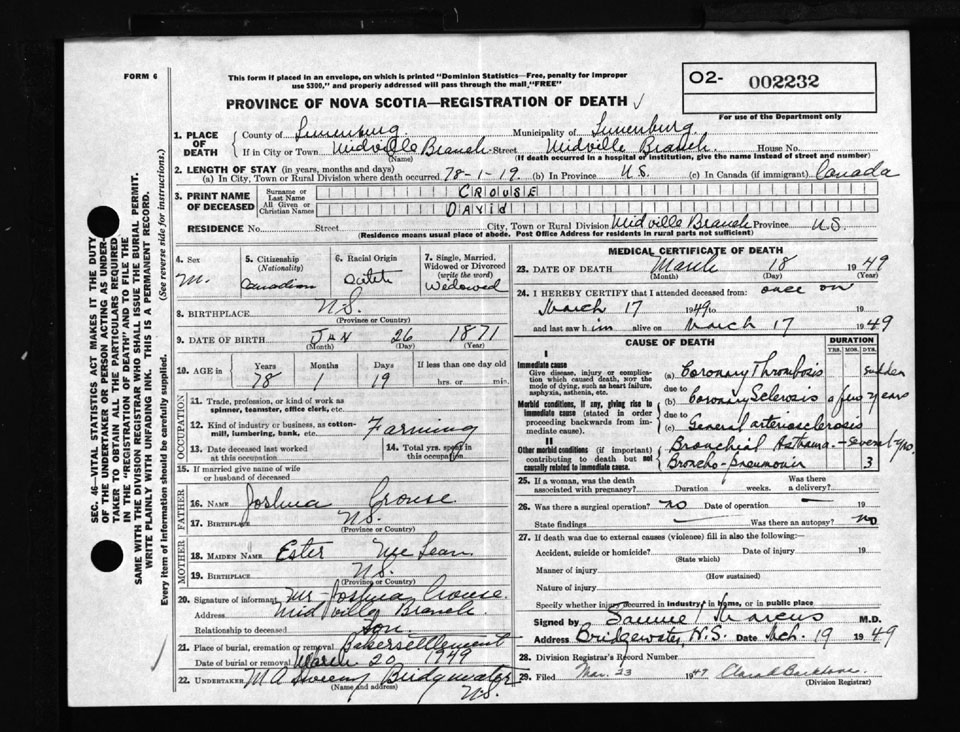 FORM 6
This form if placed in an envelope, on which is printed "Dominion Statistics—Free, penalty for improper
use $300," and properly addressed will pass through the mail, "FREE"
O2- 002232
PROVINCE OF NOVA SCOTIA—REGISTRATION OF DEATH
For use of the Department only
1. PLACE OF DEATH County of Lunenburg Municipality of Lunenburg
If in City or Town Midville Branch Street Midville Branch House No.
(Name) (If death occurred in a hospital or institution, give the name instead of street and number)
2. LENGTH OF STAY (in years, months and days)
(a) In City, Town or Rural Division where death occurred 78-1-19. (b) In Province N.S. (c) In Canada (if immigrant) Canada
3. PRINT NAME OF DECEASED
Surname or Last Name CROUSE
All Given or Christian Names DAVID
RESIDENCE No. Street City, Town or Rural Division Midville Branch Province N.S.
(Residence means usual place of abode. Post Office Address for residents in rural parts not sufficient)
4. Sex M.
5. Citizenship (Nationality) Canadian
6. Racial Origin
7. Single, Married, Widowed or Divorced (write the word) Widowed
8. BIRTHPLACE N.S.
(Province or Country)
9. DATE OF BIRTH JAN 26 1871
(Month) (Day) (Year)
10. AGE in Years Months Days If less than one day old
78 1 19 hrs. or min.
OCCUPATION
11. Trade, profession, or kind of work as
spinner, teamster, office clerk, etc.
12. Kind of industry or business, as cotton-
mill, lumbering, bank, etc. Farming
13. Date deceased last worked at this occupation
14. Total yrs. spent in this occupation
15. If married give name of wife
or husband of deceased
FATHER
16. Name Joshua Crouse
17. Birthplace N.S.
(Province or Country)
MOTHER
18. MAIDEN NAME Ester
19. BIRTHPLACE N.S.
(Province or Country)
20. Signature of informant Mr Joshua Crouse.
Address Midville Branch.
Relationship to deceased Son.
21. Place of burial, cremation or removal Bakersettlement
Date of burial or removal March 20, 1949
22. UNDERTAKER M A Bridgewater
(Name and address) N.S.
MEDICAL CERTIFICATE OF DEATH
23. DATE OF DEATH March 18 1949
(Month) (Day)
24. I HEREBY CERTIFY that I attended deceased from: once on
March 17 1949 to 19
and last saw him alive on March 17 1949
CAUSE OF DEATH DURATION
YRS. MOS. DYS.
I
Immediate cause
Give disease, injury or complica-
tion which caused death, NOT the
mode of dying, such as heart failure,
asphyxia, asthenia, etc.
(a) Coronary Thrombosis Sudden
due to
Morbid conditions, if any, giving rise to
immediate cause (stated in order
proceeding backwards from im-
mediate cause).
(b) Coronary Sclerosis a few years
due to
(c) General arteriosclerosis
II
Other morbid conditions (if important)
contributing to death but not
causally related to immediate cause.
Bronchial Asthma - several yrs.
Broncho-pneumonia 3
25. If a woman, was the death
associated with pregnancy? Duration weeks. Was there
a delivery?
26. Was there a surgical operation? no Date of operation 19
State findings Was there an autopsy? no
27. If death was due to external causes (violence) fill in also the following:—
Accident, suicide or homicide? Date of injury 19
(State which)
Manner of injury
(How sustained)
Nature of injury
Specify whether injury occurred in industry, in home, or in public place
Signed by Samuel Marcus M.D.
Address Bridgewater, N.S. Date Mch. 19 1949
28. Division Registrar's Record Number
29. Filed Mar. 23 1949
(Division Registrar)
SEC. 46—VITAL STATISTICS ACT MAKES IT THE DUTY
OF THE UNDERTAKER OR PERSON ACTING AS UNDER-
TAKER TO OBTAIN ALL THE PARTICULARS REQUIRED
IN THE "REGISTRATION OF DEATH" AND TO FILE THE
SAME WITH THE DIVISION REGISTRAR WHO SHALL ISSUE THE BURIAL PERMIT.
WRITE PLAINLY WITH UNFADING INK. THIS IS A PERMANENT RECORD.
Every item of Information should be carefully supplied. (See reverse side for instructions.)